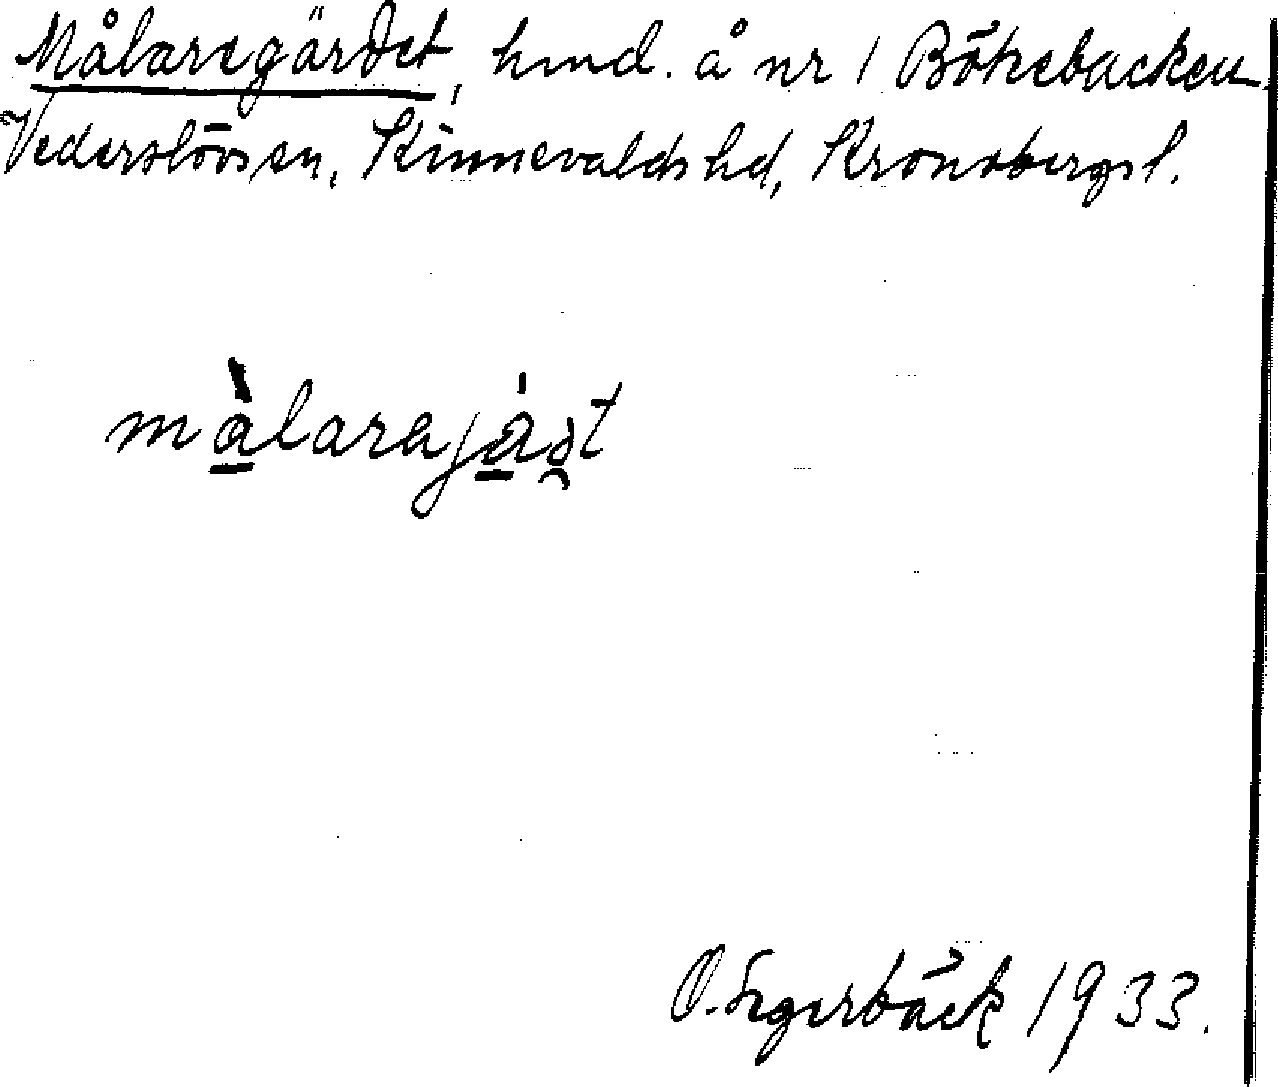 Målaregärdet, hmd. å nr 1 Bökebacken
Vederslövs sn, Kinnevalds hd, Kronobergs l.
målarajäst
O. Segerbäck 1933.